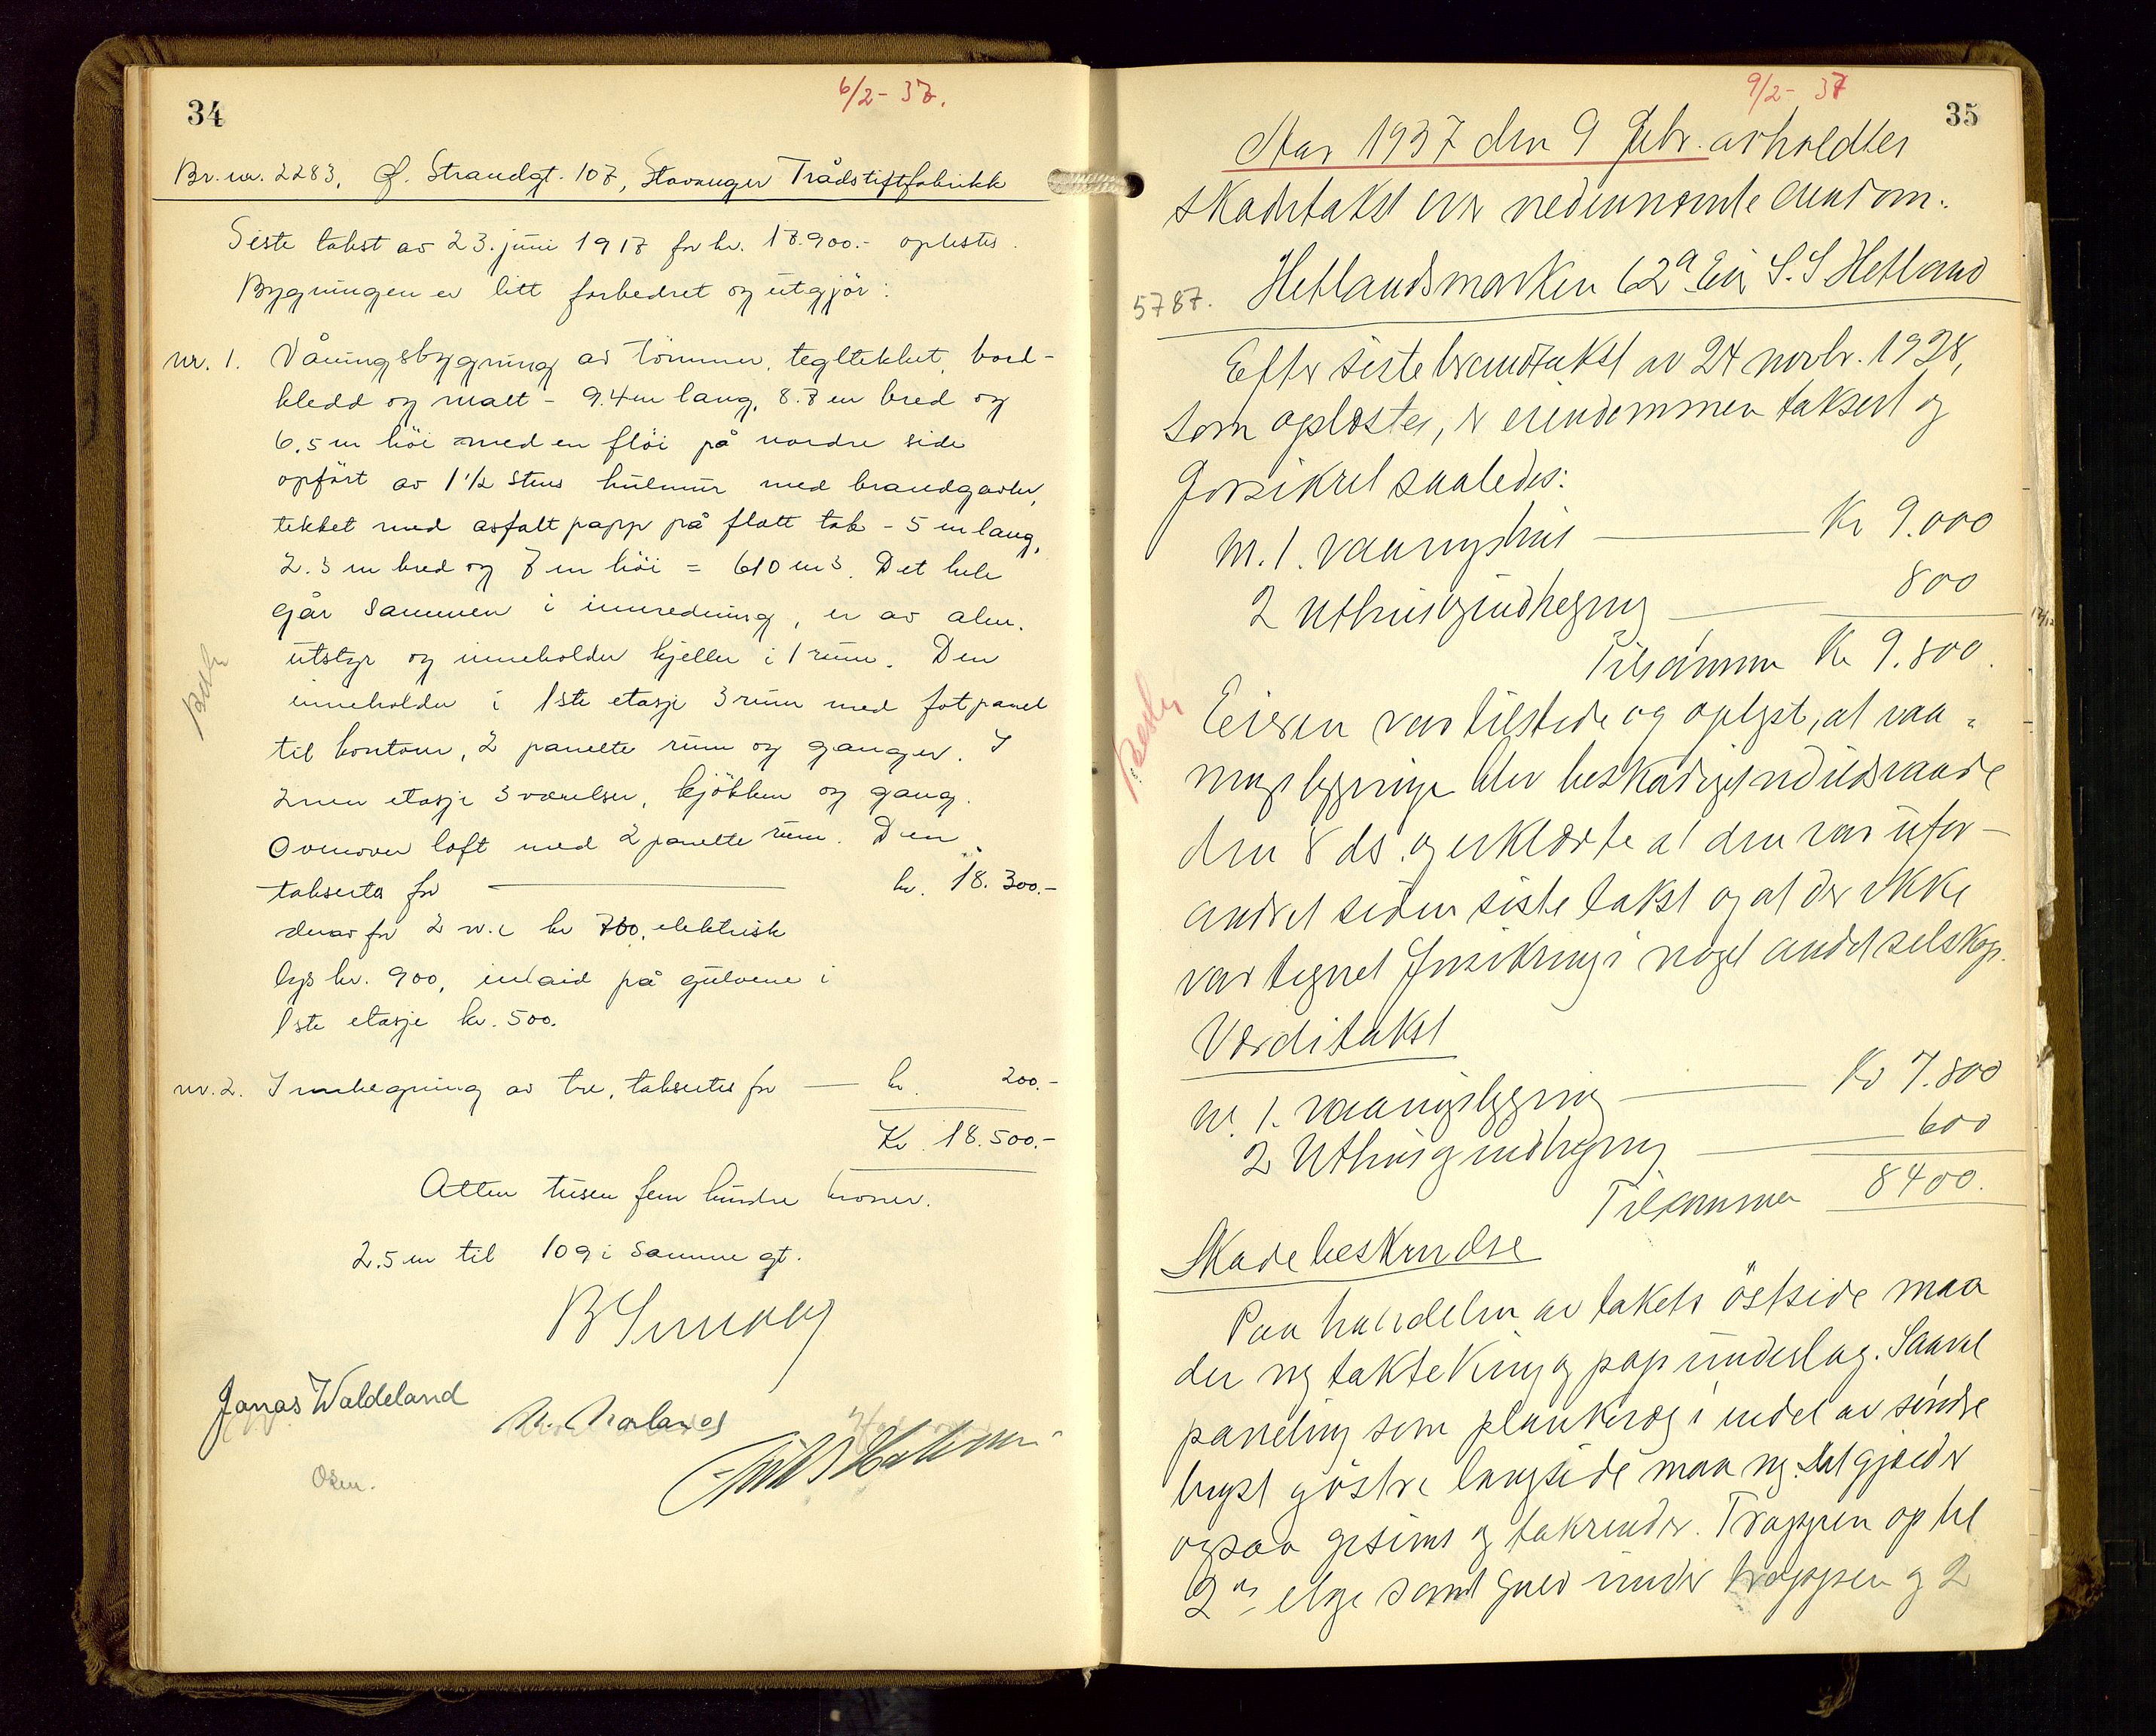 34
6/2 - 37.
Br. nr. 2283. Ø. Strandgt. 107, Stavanger Trådstiftfabrikk
Siste takst av 23. juni 1917 for kr. 17.900.- oplestes.
Bygningen er litt forbedret og utgjör:
nr. 1. Våningsbygning av tömmer, tegltekket, bord-
kledd og malt - 9.4 m lang, 8.7 m bred og
6.5 m höi med en flöi på nordre side
opfört av 1 1/2 stens hulmur med brandgavler,
tekket med asfaltpapp på flatt tak - 5 m lang,
2.3 m bred og 7 m höi = 610 m3. Det hele
går sammen i innredning, er av alm.
utstyr og inneholder kjeller i 1 rum. Den
inneholder i 1ste etasje 3 rum med fotpanel
til kontor, 2 panelte rum og ganger. I
2nen etasje 3 værelser, kjökken og gang.
Ovenover loft med 2 panelte rum. Den
takseres for kr. 18.300.-
derav for 2 w.c kr 700, elektrisk
lys kr. 900, inlaid på gulvene i
1ste etasje kr. 500.
nr. 2. Innhegning av tre, takseres for kr. 200.-
Kr. 18.500.-
Atten tusen fem hundre kroner.
2.5 m til 109 i samme gt.
Jonas Waldeland
35
9/2 - 37
Aar 1937 den 9 Febr. avholdtes
skadetakst over nedennevnte eiendom.
5787. Hetlandsmarken 62a Eier S. S Hetland
Efter siste brandtakst av 24 novbr. 1928,
som oplæstes, er eiendommen taksert og
forsikret saaledes:
nr. 1. vaaningshus Kr 9.000
2 Uthus og indhegning 800
Tilsammen Kr 9.800.
Eieren var tilstede og oplyst, at vaa-
ningsbygningen blev beskadiget ved ildsvaade
den 8 ds. og erklærte at den var ufor-
andret siden siste takst og at der ikke
var tegnet forsikring i noget andet selskap.
Værditakst
nr. 1. vaaningsbygning Kr 7.800
2 Uthus og indhegning 600
Tilsammen 8400.
Skadebeskrivelse
Paa halvdelen av takets östside maa
der ny taktekking og pap underlag. Saavel
paneling som plankevæg i endel av söndre
bryst og östre langside maa ny. Det gjælder
ogsaa gesims og takrender. Trappen op til
2en etge samt gulv under trappen og 2